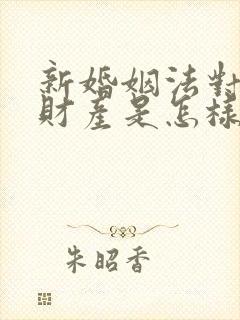 新婚姻法對
財產是怎樣
朱昭香